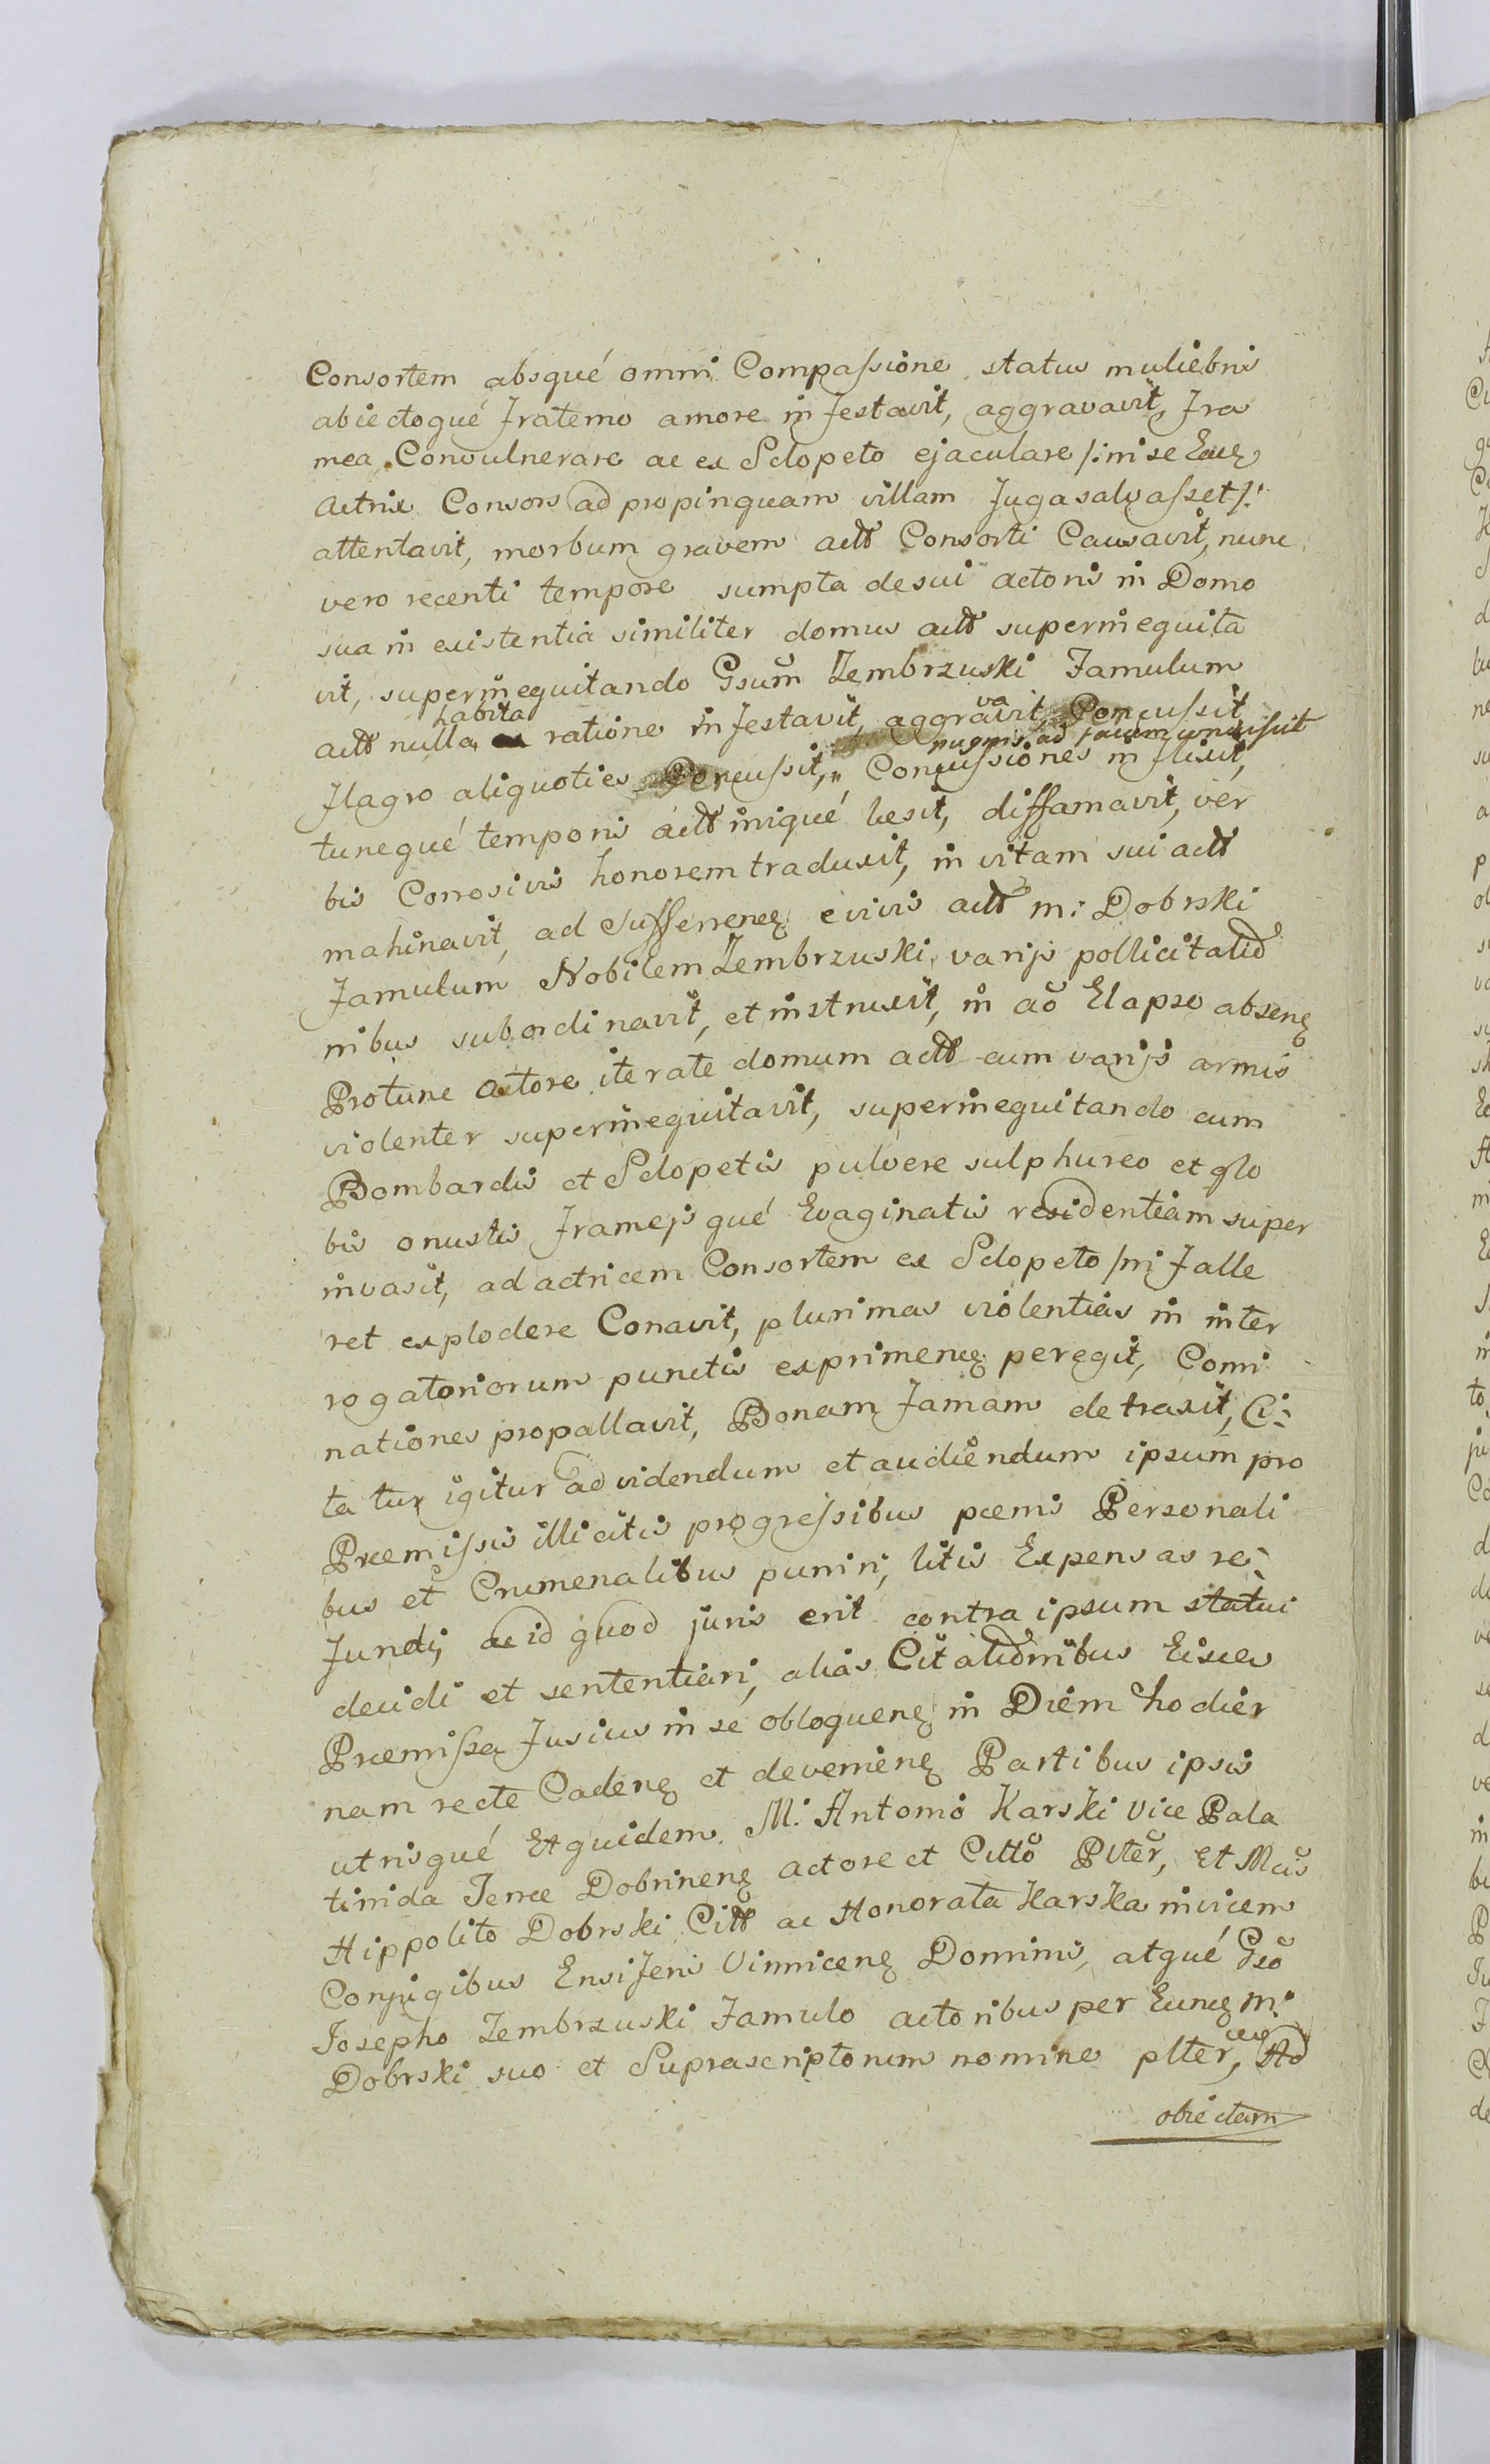 Consortem absqué omni Compassione status muliebris
abiectoqué fraterno amore infestavit, aggravavit, fra
mea Convulnerare ac ex Sclopeto ejaculare /: ni se Eadę
Actrix Consors ad propinquam villam fuga salvasset :/
attentavit, morbum gravem actt Consorti Causavit, nunc
vero recenti tempore sumpta de sui actoris in Domo
sua in existentia similiter domus actt superinequita
vit, superinequitando Gsum Zembrzuski Famulum
actt nulla habita ratione infestavit, aggravavit, Percussit
flagro aliquoties Percussit, pugnis ad faciem concussit Concussiones inflixit,
tuncqué temporis actt iniqué lesit, diffamavit, ver
bis Corrosivis honorem traduxit, in vitam sui actt
mahinavit, ad sufferrenę e vivis actt M: Dobrski
famulum Nobilem Zembrzuski varijs pollicitatio
nibus subordinavit, et instruxit, in ao Elapso absenę
Protunc actore iterate domum actt cum varijs armis
violenter superinequitavit, superinequitando cum
Bombardis et Sclopetis pulvere sulphureo et glo
bis onustis framejsqué Evaginatis residentiam super
invasit, ad actricem Consortem ex Sclopeto /ni falle
ret explodere Conavit, plurimas violentias in inter
rogatoriorum punctis exprimenę peregit, Comi
nationes propallavit, Bonam famam detraxit, Ci:
tatur igitur ad videndum et audiendum ipsum pro
Præmissis illicitis progressibus pœnis Personali
bus et Crumenalibus puniri, litis Expensas re:
fundi, ac id quod juris erit contra ipsum statui
decidi et sententiari, alias Citationibus Eisce
Præmissa fusius in se obloquenę in Diem hodier
nam recte Cadenę et devenienę Partibus ipsis
utrisqué Et quidem M: Antonio Karski Vice Pala
tinida Terræ Dobrinenę actore et Citto Plter, et Mcis
Hippolito Dobrski Citt ac Honorata Karska invicem
Conjugibus Ensiferis Vinnicenę Dominis, atqué Gso
Josepho Zembrzuski Famulo actoribus per Eunę M:
Dobrski suo et Suprascriptorum nomine plter, Ad
obiectam